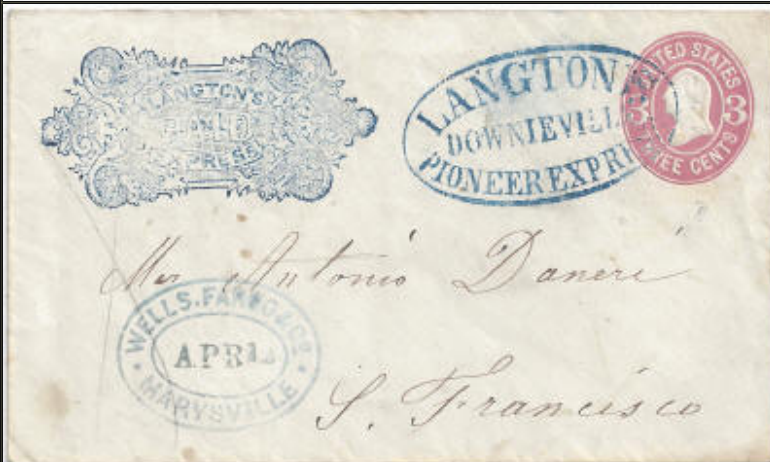 LANGTON'S
PAID
EXPRESS
LANGTON'S
DOWNIEVILLE
PIONEER EXPRESS
UNITED STATES
3 3
THREE CENTS
Mr Antonio Daneri
WELLS, FARGO & Co.
APR
MARYSVILLE
S. Francisco